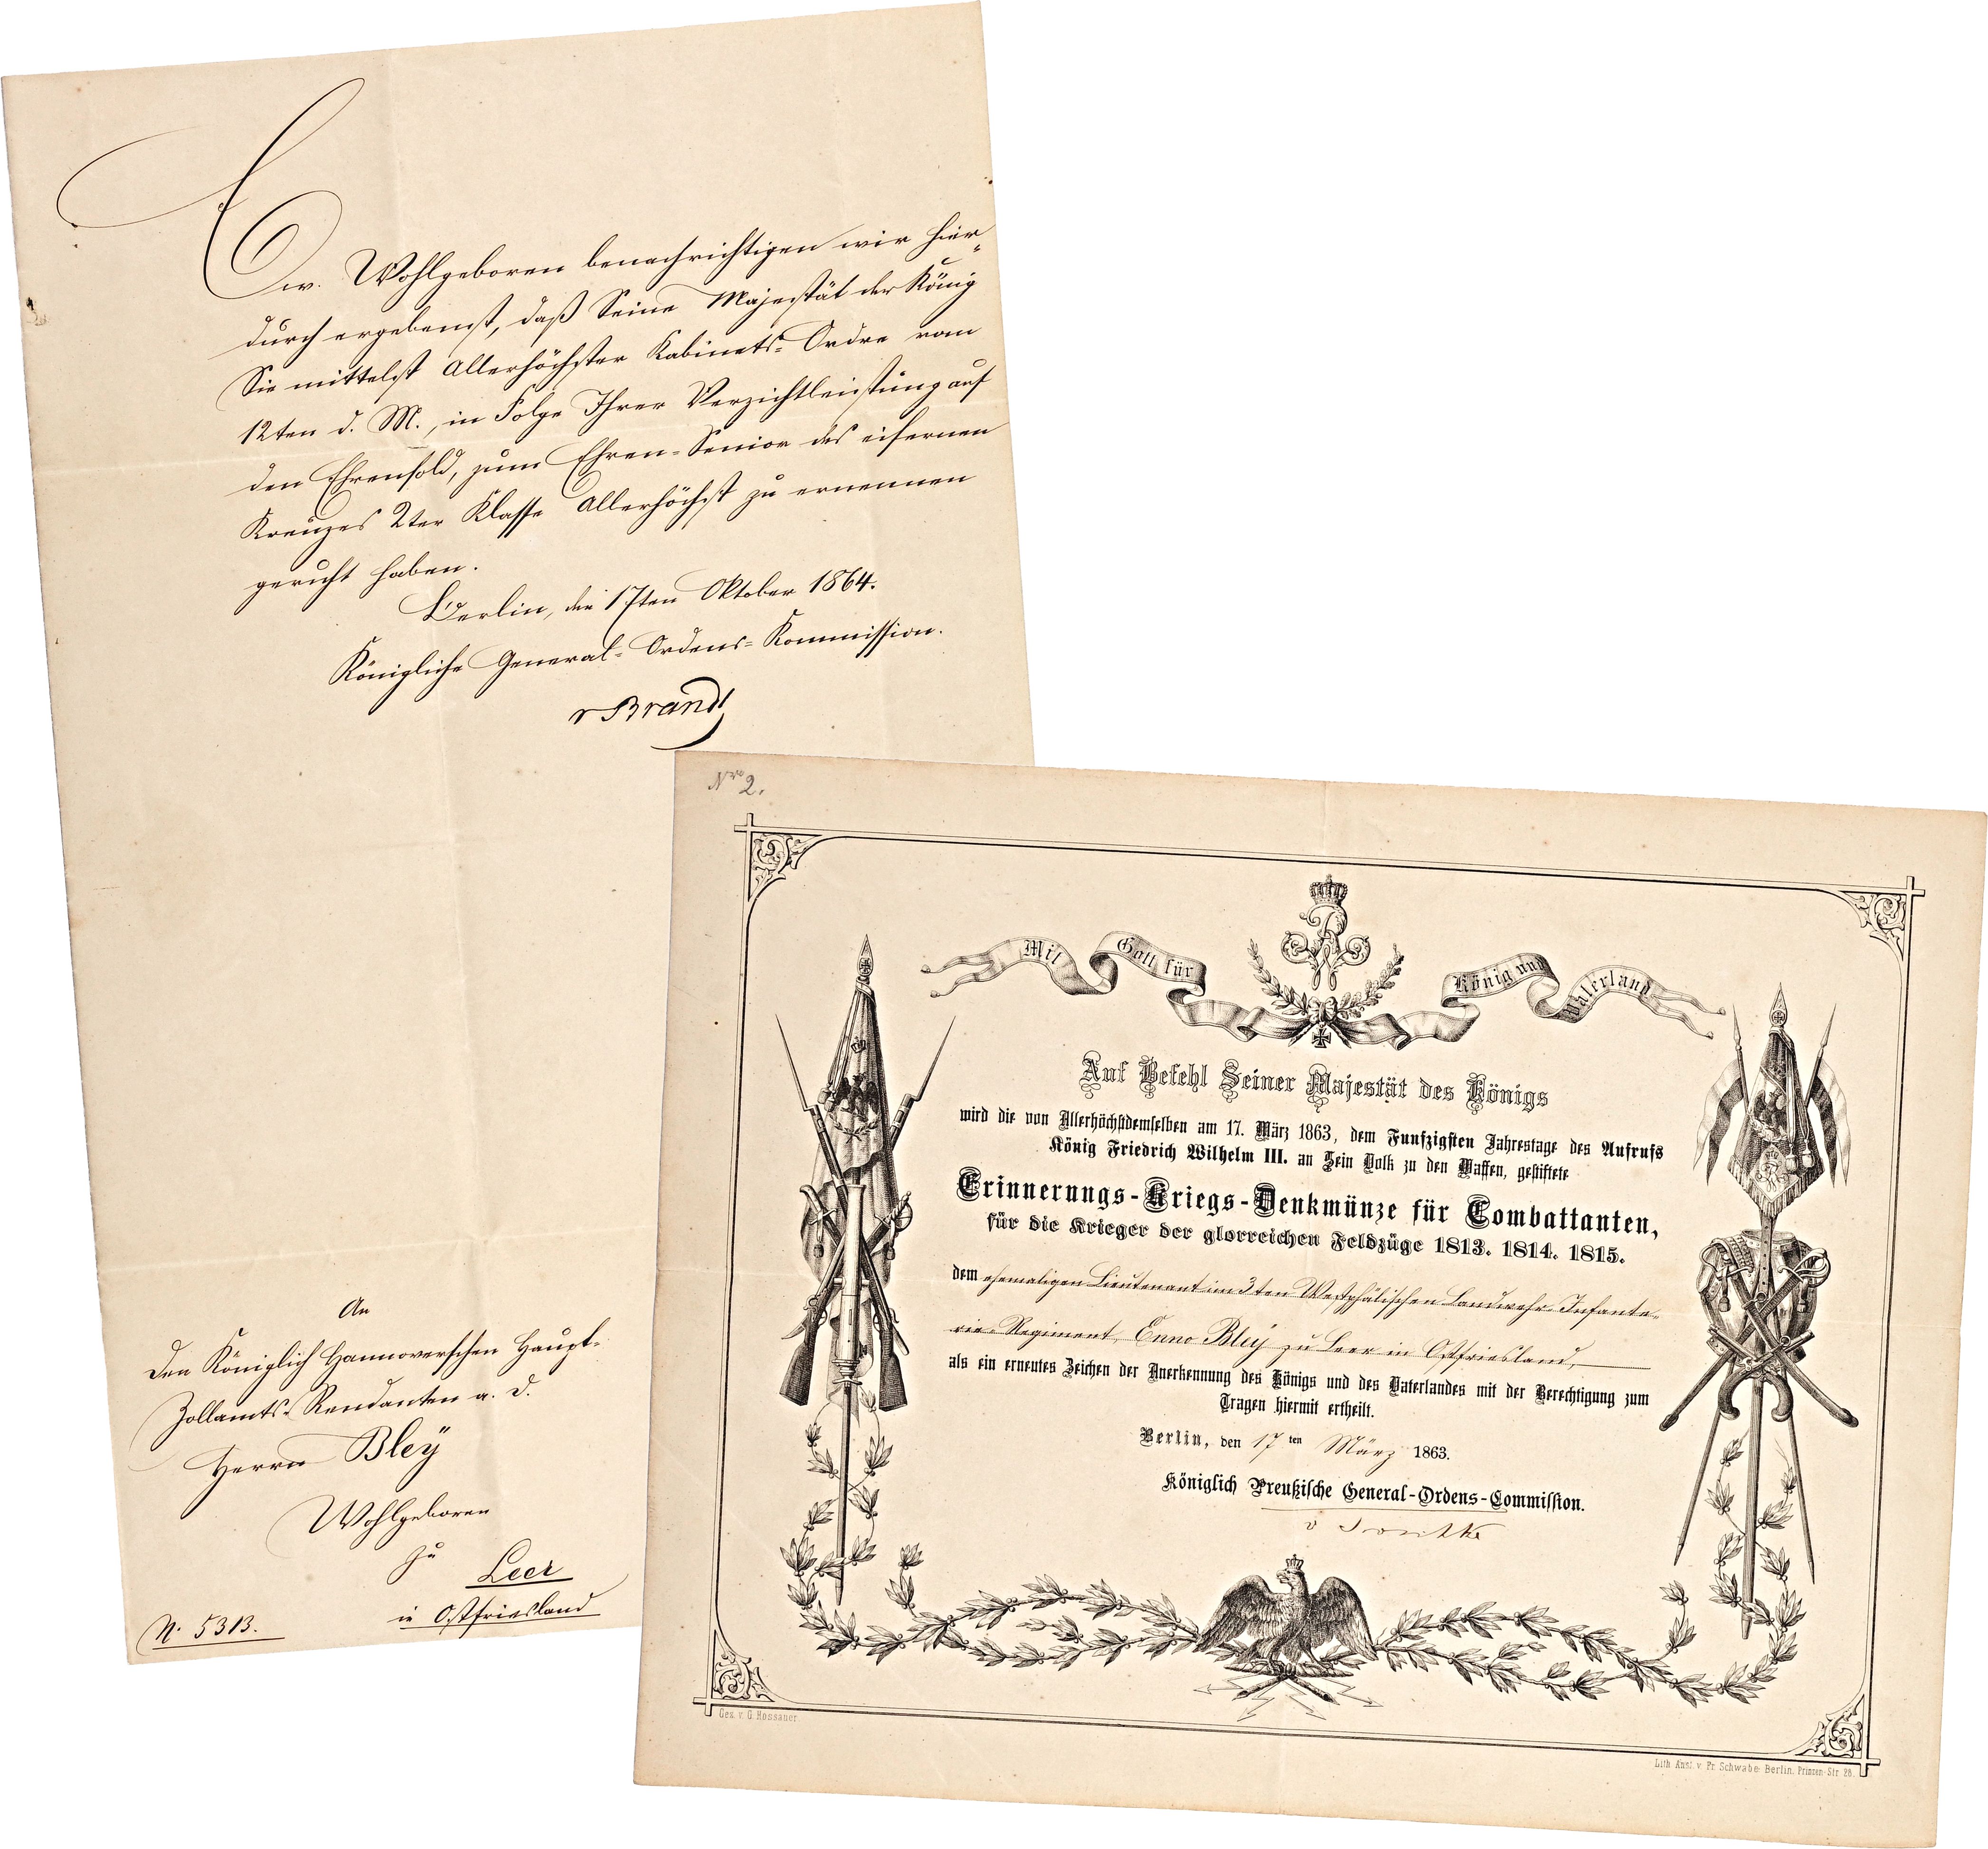 Ew. Wohlgeboren benachrichtigen wir hier=
durch ergebenst, daß Seine Majestät der König
Sie mittelst Allerhöchster Kabinets=Ordre vom
12ten d. M., in Folge Ihrer Verzichtleistung auf
den Ehrensold, zum Ehren=Senior des eisernen
Kreuzes 2ter Klasse Allerhöchst zu ernennen
geruht haben.
Berlin, den 17ten Oktober 1864.
Königliche General=Ordens=Kommission.
v Brandt
An
den Königlich Hannoverschen Haupt=
Zollamts=Rendanten a. D.
Herrn Bleÿ
Wohlgeboren
zu Leer
in Ostfriesland
N. 5313.
Nro 2.
Mit Gott für König und Vaterland
Auf Befehl Seiner Majestät des Königs
wird die von Allerhöchstdemselben am 17. März 1863, dem Funfzigsten Jahrestage des Aufrufs
König Friedrich Wilhelm III. an Sein Volk zu den Waffen, gestiftete
Erinnerungs-Kriegs-Denkmünze für Combattanten,
für die Krieger der glorreichen Feldzüge 1813. 1814. 1815.
dem ehemaligen Lieutenant im 3ten Westphälischen Landwehr-Infante=
rie-Regiment, Enno Bleÿ zu Leer in Ostfriesland,
als ein erneutes Zeichen der Anerkennung des Königs und des Vaterlandes mit der Berechtigung zum
Tragen hiermit ertheilt.
Berlin, den 17ten März 1863.
Königlich Preußische General-Ordens-Commission.
Ges. v. G. Hossauer
Lith. Anst. v. Fr. Schwabe Berlin. Prinzen-Str. 26.